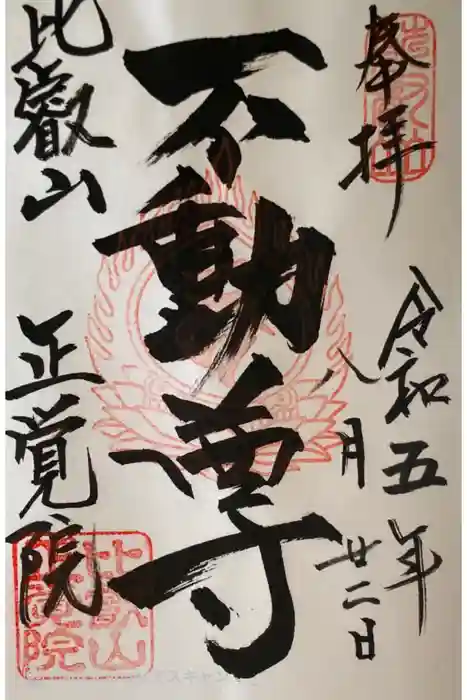 奉拝
令和五年
八月廿二日
不動尊
比叡山
正覚院
比叡山
正覚院